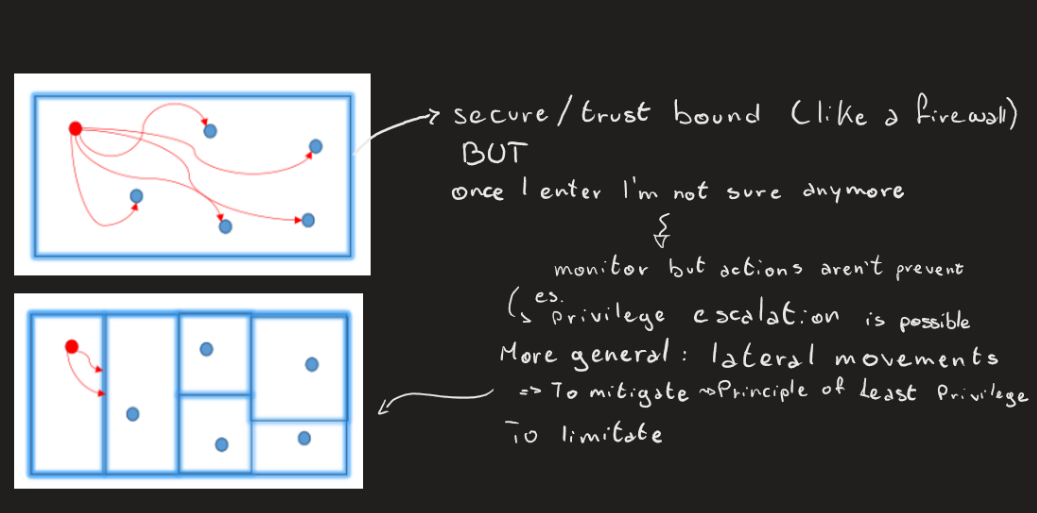 secure/trust bound (like a firewall)
BUT
once I enter I'm not sure anymore
monitor but actions aren't prevent
es.
privilege escalation is possible
More general: lateral movements
=> To mitigate ⇝ Principle of Least Privilege
To limitate